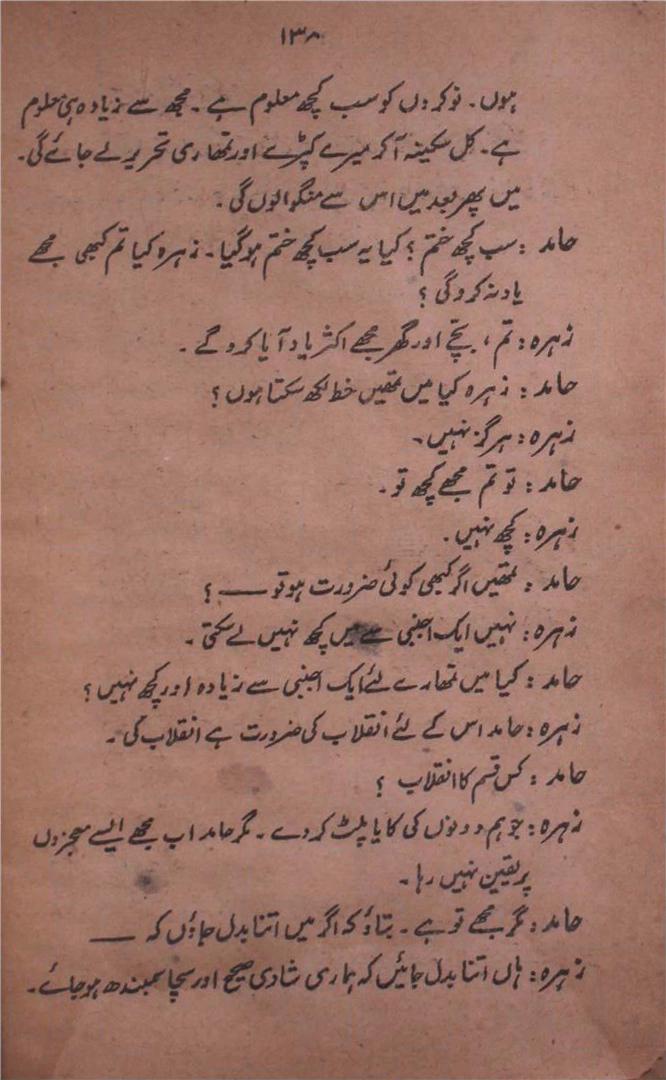 ۱۳۸
ہوں۔ نوکروں کو سب کچھ معلوم ہے۔ مجھ سے زیادہ ہی معلوم
ہے۔ کل سکینہ آکر میرے کپڑے اور تمھاری تحریر لے جائے گی۔
میں پھر بعد میں اس سے منگوا لوں گی۔
حامد : سب کچھ ختم ؟ کیا یہ سب کچھ ختم ہو گیا۔ زہرہ کیا تم کبھی مجھے
یاد نہ کرو گی ؟
زہرہ : تم ، بچے اور گھر مجھے اکثر یاد آیا کرو گے ۔
حامد : زہرہ کیا میں تمھیں خط لکھ سکتا ہوں ؟
زہرہ : ہرگز نہیں۔
حامد : تو تم مجھے کچھ تو ۔
زہرہ : کچھ نہیں۔
حامد : تمھیں اگر کبھی کوئی ضرورت ہو تو —— ؟
زہرہ : نہیں ایک اجنبی سے میں کچھ نہیں لے سکتی ۔
حامد : کیا میں تمھارے لئے ایک اجنبی سے زیادہ اور کچھ نہیں ؟
زہرہ : حامد اس کے لئے انقلاب کی ضرورت ہے انقلاب کی ۔
حامد : کس قسم کا انقلاب ؟
زہرہ : جو ہم دونوں کی کایا پلٹ کر دے ۔ مگر حامد اب مجھے ایسے معجزوں
پر یقین نہیں رہا ۔
حامد : مگر مجھے تو ہے ۔ بتاؤ کہ اگر میں اتنا بدل جاؤں کہ ——
زہرہ : ہاں اتنا بدل جائیں کہ ہماری شادی صحیح اور سچا سمبندھ ہو جائے ۔